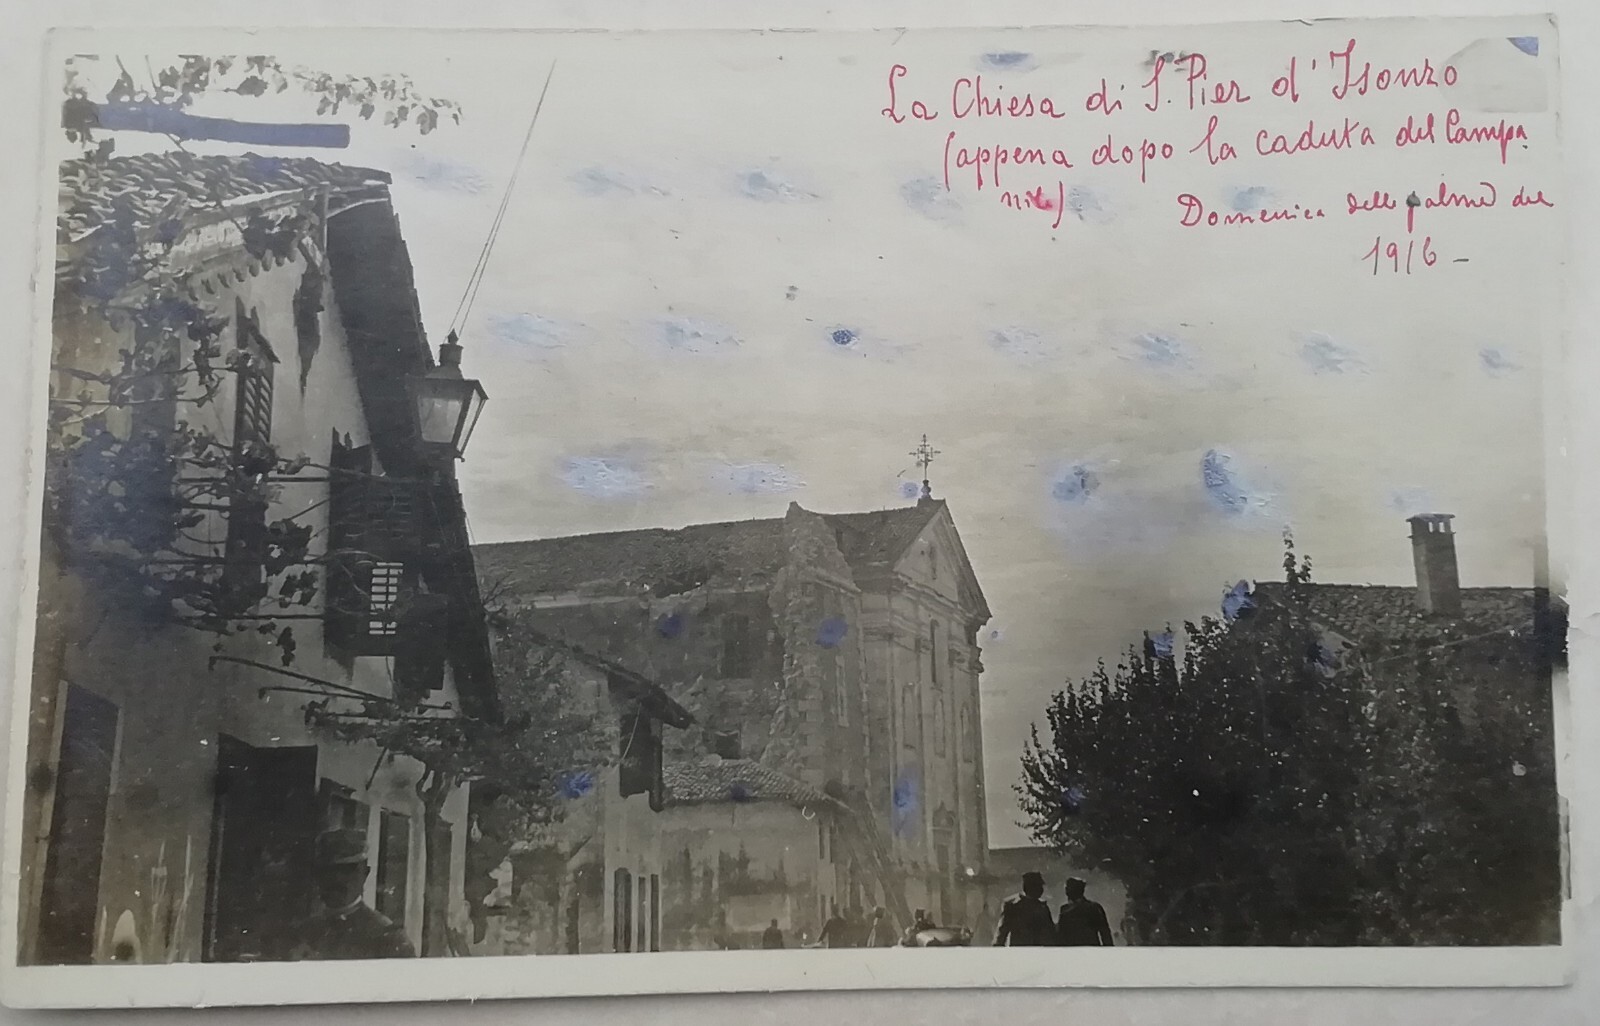 La Chiesa di S. Pier d'Isonzo
(appena dopo la caduta del Campa
nile) Domenica delle palme del
1916 -